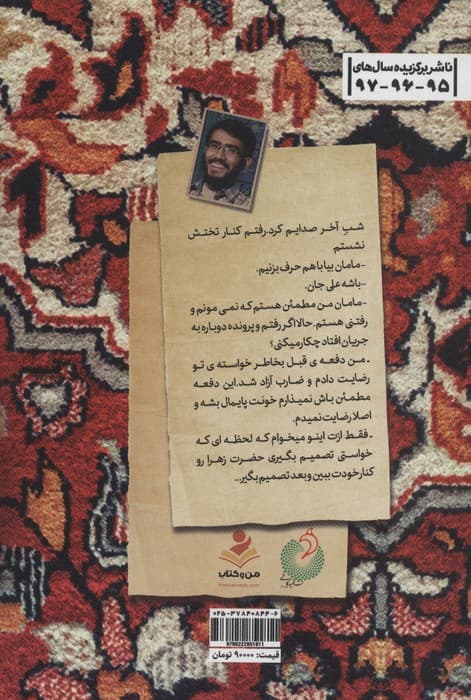 ناشر برگزیده سال‌های
۹۵-۹۶-۹۷
شبِ آخر صدایم کرد. رفتم کنار تختش
نشستم
-مامان بیا با هم حرف بزنیم.
-باشه علی جان.
-مامان من مطمئن هستم که نمی مونم و
رفتنی هستم. حالا اگر رفتم و پرونده دوباره به
جریان افتاد چکار میکنی؟
- من دفعه ی قبل بخاطر خواسته ی تو
رضایت دادم و ضارب آزاد شد. این دفعه
مطمئن باش نمیذارم خونت پایمال بشه و
اصلا رضایت نمیدم.
- فقط ازت اینو میخوام که لحظه ای که
خواستی تصمیم بگیری حضرت زهرا رو
کنار خودت ببین و بعد تصمیم بگیر...
من و کتاب
۰۲۵-۳۷۸۴۰۸۴۴-۶
قیمت: ۹۰۰۰۰ تومان